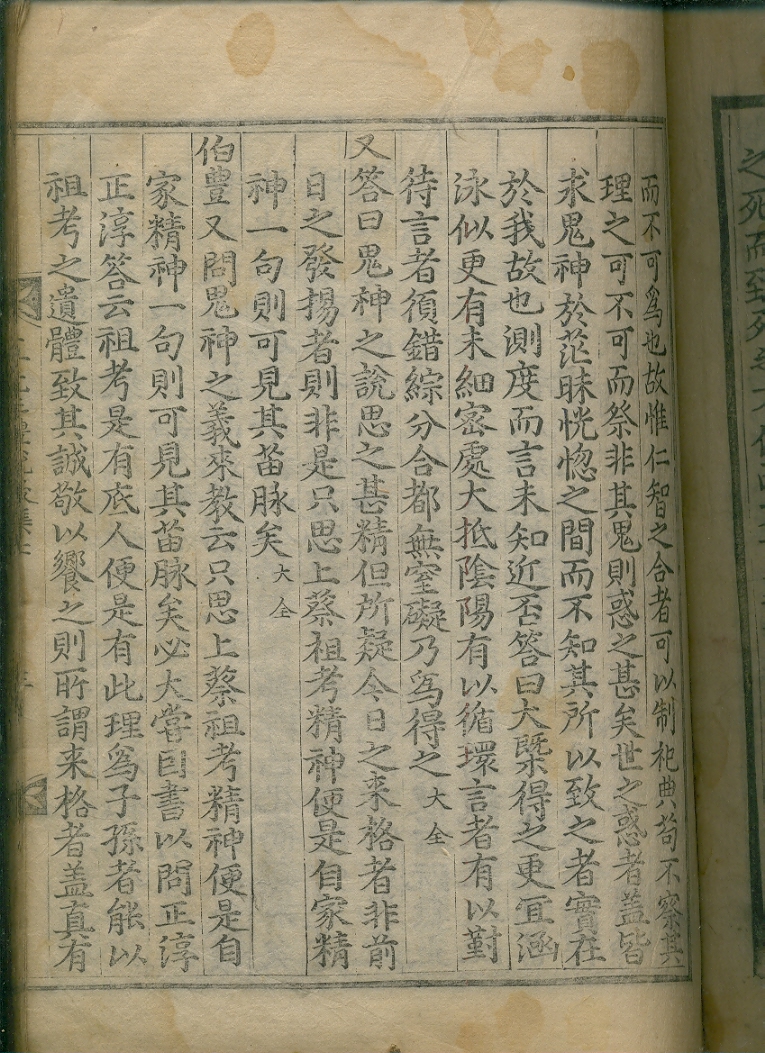 之死而致死
而不可爲也故惟仁智之合者可以制祀典苟不察其
理之可不可而祭非其鬼則惑之甚矣世之惑者盖皆
求鬼神於茫昧恍惚之間而不知其所以致之者實在
於我故也測度而言未知近否答曰大槩得之更宜涵
泳似更有未細密處大抵陰陽有以循環言者有以對
待言者須錯綜分合都無窒礙乃爲得之 大全
又答曰鬼神之說思之甚精但所疑今日之来格者非前
日之發揚者則非是只思上蔡祖考精神便是自家精
神一句則可見其苗脉矣 大全
伯豊又問鬼神之義來教云只思上蔡祖考精神便是自
家精神一句則可見其苗脉矣必大嘗因書以問正淳
正淳答云祖考是有底人便是有此理爲子孫者能以
祖考之遺體致其誠敬以饗之則所謂来格者盖真有